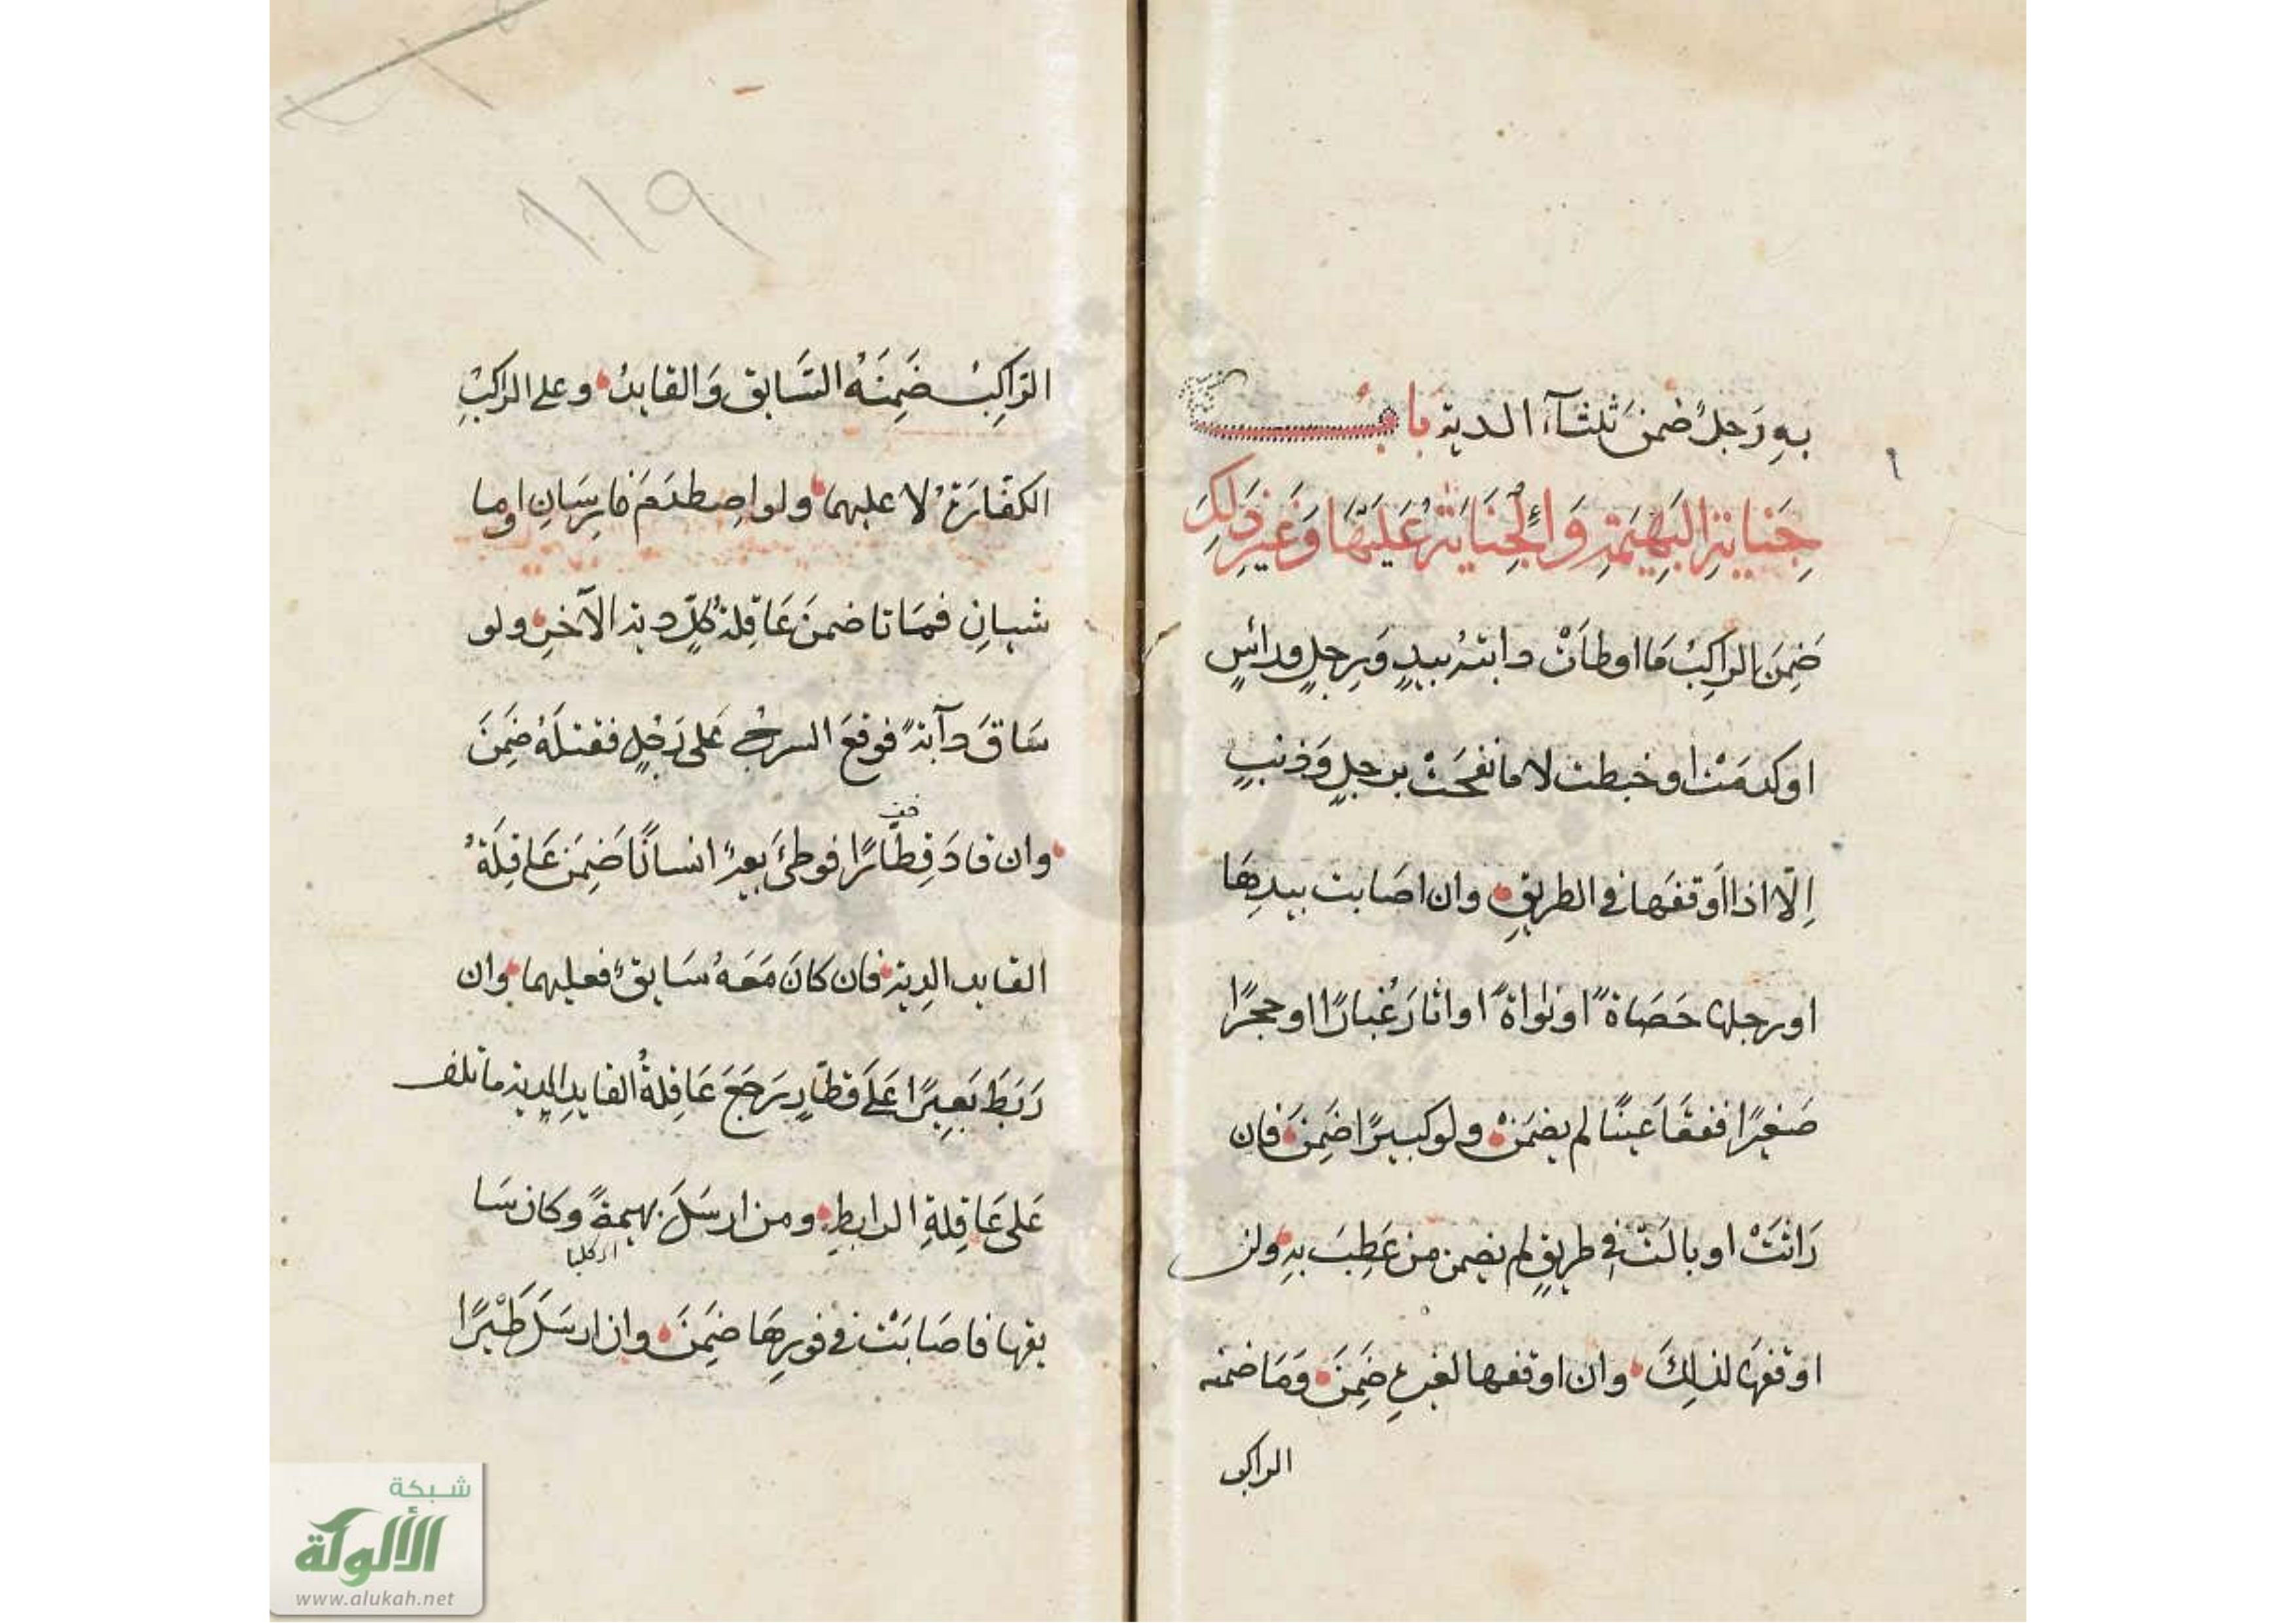 بهِ رَجلٌ ضمنَ ثلثآء الدية بَابُ
جِنَايةِ البَهِيمَةِ وَالْجِنَايَةُ عَلَيْهَا وَغَيْرِ ذَلِكَ
ضَمِنَ الراكِبُ مَا اوطأَتْ دابتهُ بيدٍ وَرِجلٍ ورأسٍ
او كدمَتْ او خبطت لا ما نفحَتْ برجلٍ وَذنبٍ
اِلّا اذا اَوقفَها في الطريقِ وان اصَابت بيدِهَا
او رجلهَا حَصَاةً او نواةً او اثارَ غُبارًا او حجرًا
صَغيرًا ففقَأَ عَينًا لم يضمَنْ ولو كبيرًا ضَمِنَ فان
رَاثَتْ او بالَتْ في طريقٍ لم يضمن من عَطِبَ بهِ ولن
اوقفهَا لذلِكَ وان اوقفها لغيرهِ ضَمِنَ وَمَا ضمنه
الراكب
١١٩
الرّاكِبُ ضَمِنَهُ السَّابق وَالقايدُ وعلى الراكبِ
الكفّارَةُ لا عليهما ولو اصِطدَمَ فارِسَانِ او ما
شيانِ فمَاتا ضمنَ عَاقِلةُ كُلٍّ دية الآخرِ ولو
سَاقَ دآبةً فوقعَ السرجُ عَلى رَجُلٍ فقتلَهُ ضَمِنَ
خف
وان قادَ قِطَارًا فوطئَ بعيرٌ انسانًا ضَمِنَ عَاقِلَةُ
القايد الدِية فان كانَ مَعَهُ سَايقٌ فعليهما وان
رَبَطَ بَعِيرًا عَلَى قطَارٍ رَجَعَ عَاقِلةُ القايدِ بدية ما تلف
عَلى عَاقِلةِ الرابطِ ومن ارسَلَ بهيمةً وكان سَا
او كلبا
يقها فاصَابَتْ في فورِهَا ضَمِنَ وان ارسَلَ طَيْرًا
شبكة
الألوكة
www.alukah.net